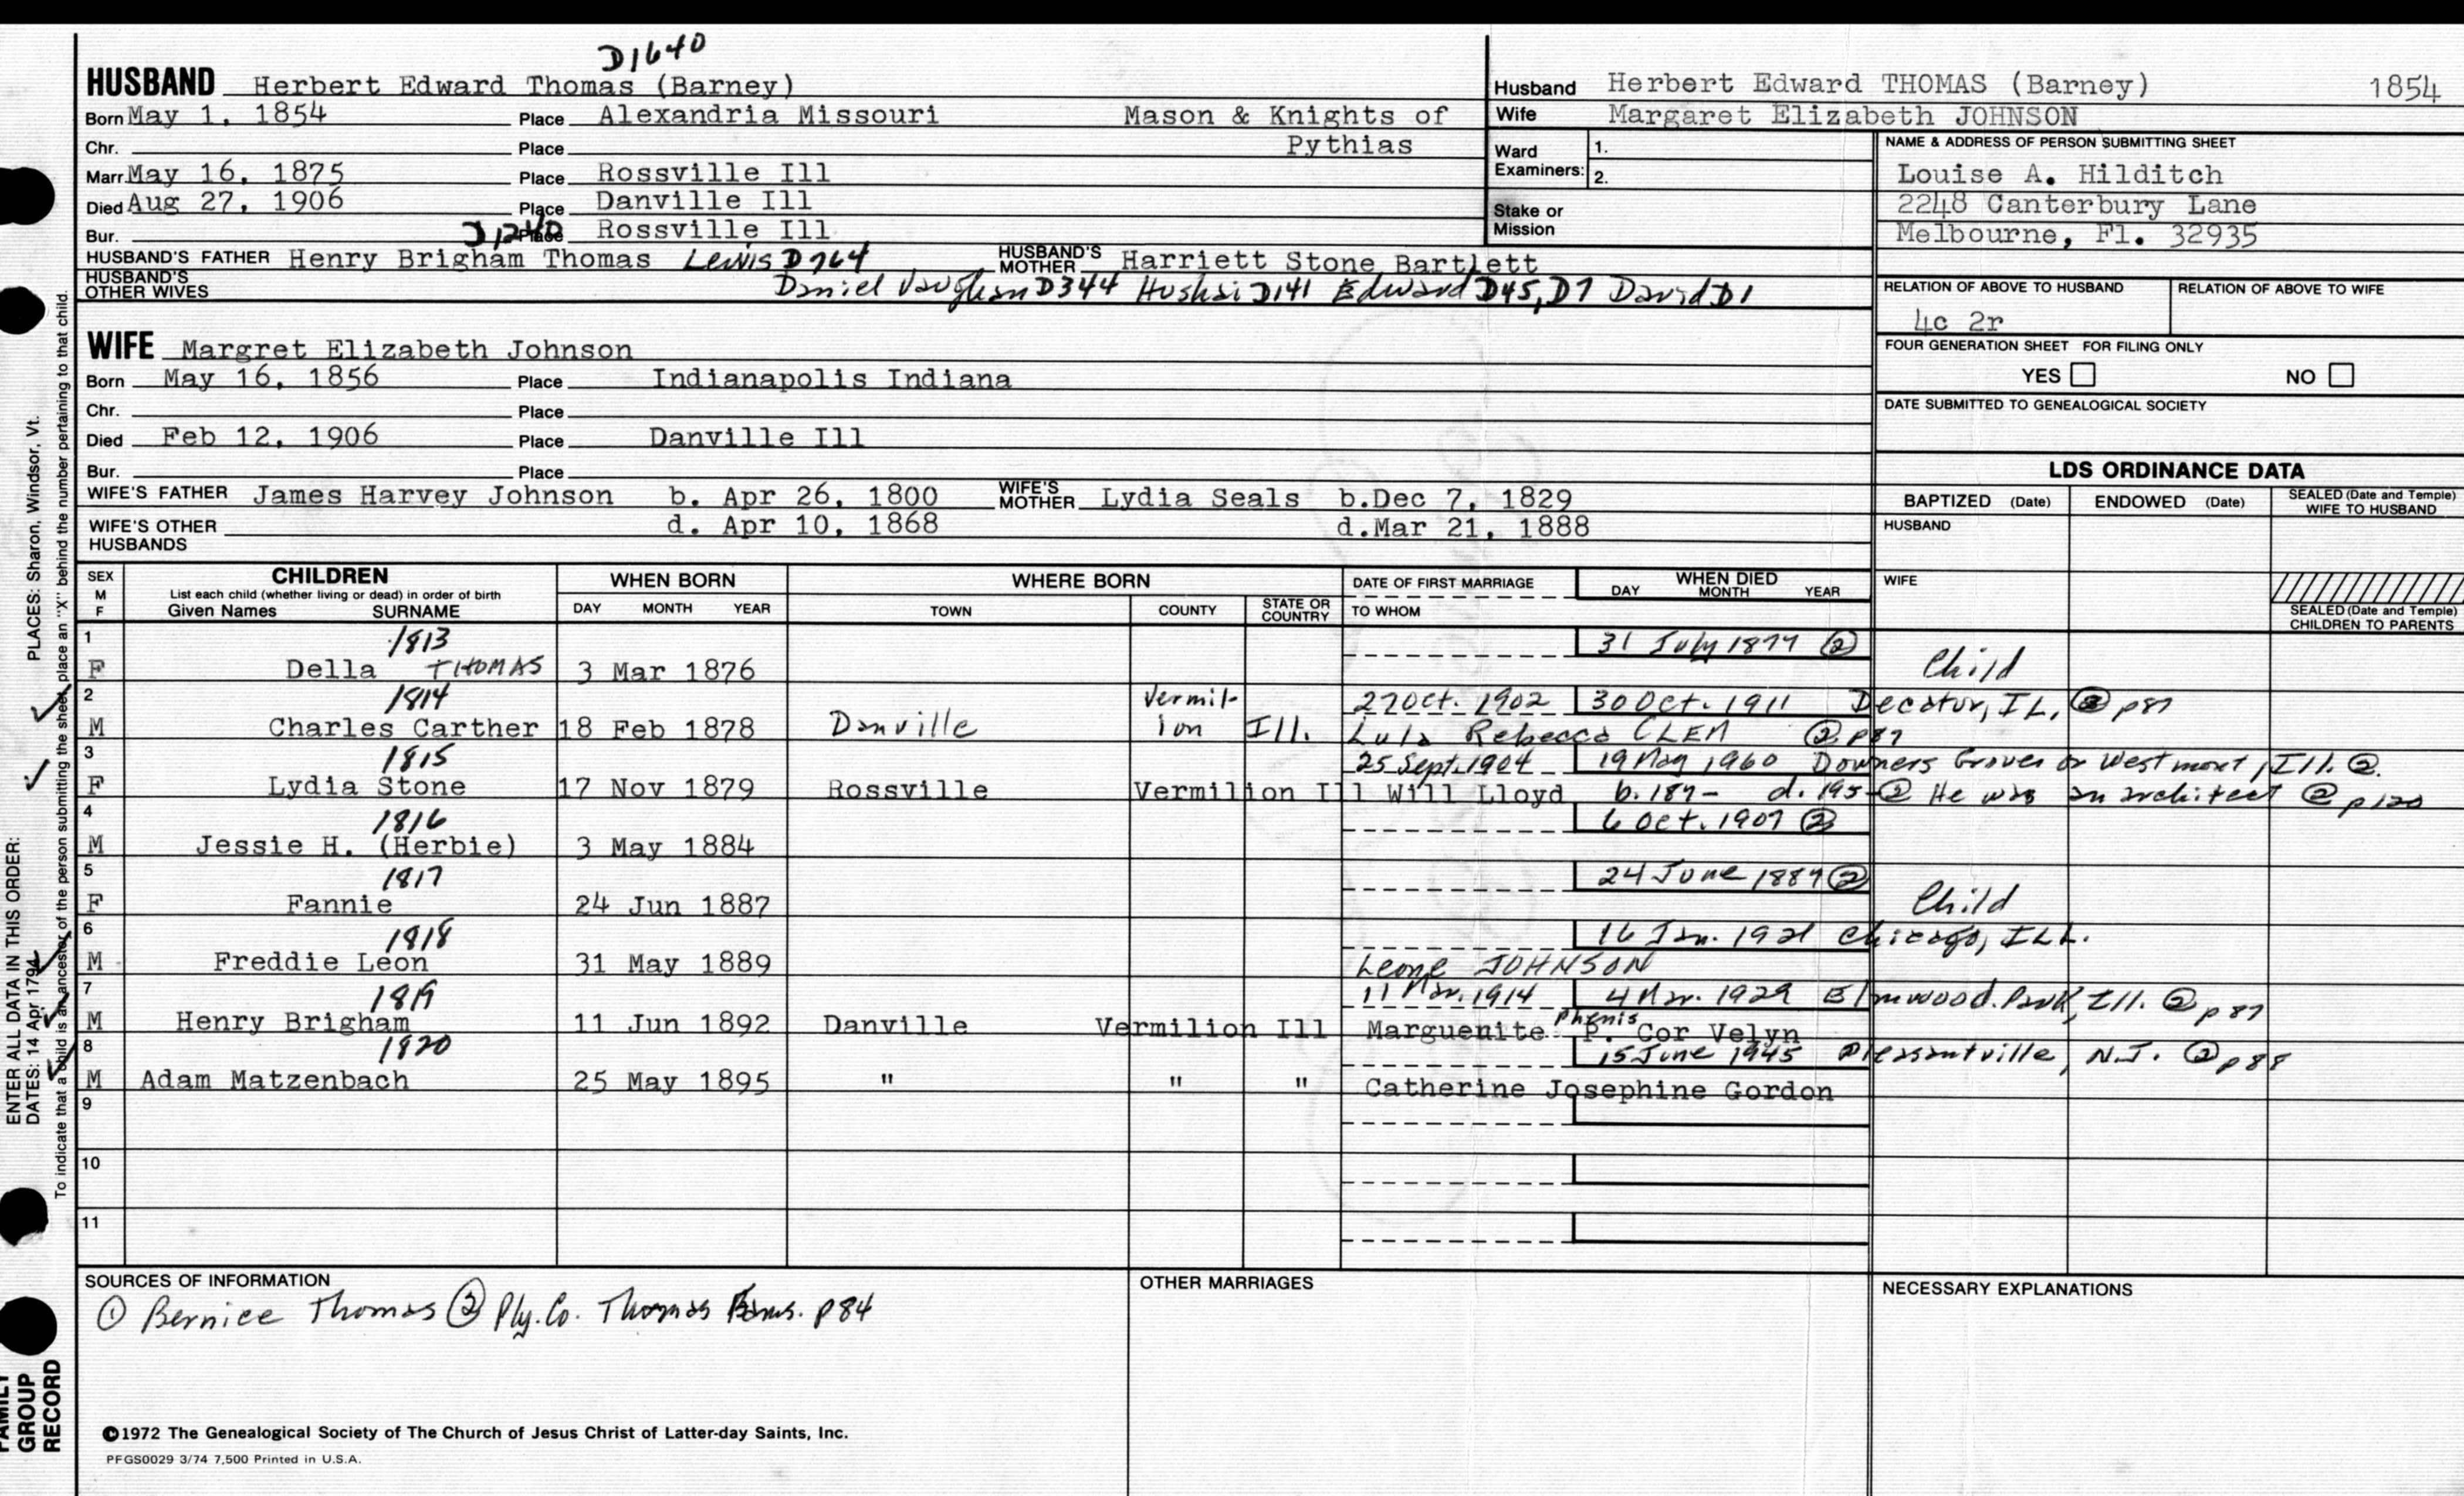 D1640
HUSBAND Herbert Edward Thomas (Barney)
Born May 1, 1854 Place Alexandria Missouri Mason & Knights of
Chr. Place Pythias
Marr. May 16, 1875 Place Rossville Ill
Died Aug 27, 1906 Place Danville Ill
Bur. Place Rossville Ill
D1240
HUSBAND'S FATHER Henry Brigham Thomas Lewis D764 HUSBAND'S MOTHER Harriett Stone Bartlett
HUSBAND'S OTHER WIVES Daniel Vaughan D344 Hushai D141 Edward D45, D7 David D1
WIFE Margret Elizabeth Johnson
Born May 16, 1856 Place Indianapolis Indiana
Chr. Place
Died Feb 12, 1906 Place Danville Ill
Bur. Place
WIFE'S FATHER James Harvey Johnson b. Apr 26, 1800 WIFE'S MOTHER Lydia Seals b.Dec 7, 1829
WIFE'S OTHER HUSBANDS d. Apr 10, 1868 d.Mar 21, 1888
Husband Herbert Edward THOMAS (Barney) 1854
Wife Margaret Elizabeth JOHNSON
Ward Examiners: 1.
2.
Stake or Mission
NAME & ADDRESS OF PERSON SUBMITTING SHEET
Louise A. Hilditch
2248 Canterbury Lane
Melbourne, Fl. 32935
RELATION OF ABOVE TO HUSBAND RELATION OF ABOVE TO WIFE
4c 2r
FOUR GENERATION SHEET FOR FILING ONLY
YES NO
DATE SUBMITTED TO GENEALOGICAL SOCIETY
LDS ORDINANCE DATA
BAPTIZED (Date) ENDOWED (Date) SEALED (Date and Temple) WIFE TO HUSBAND
HUSBAND
WIFE
SEALED (Date and Temple) CHILDREN TO PARENTS
SEX M F
CHILDREN
List each child (whether living or dead) in order of birth
Given Names SURNAME
WHEN BORN
DAY MONTH YEAR
WHERE BORN
TOWN COUNTY STATE OR COUNTRY
DATE OF FIRST MARRIAGE
TO WHOM
WHEN DIED
DAY MONTH YEAR
1 1813 31 July 1877 ②
F Della THOMAS 3 Mar 1876 Child
2 1814 Vermil- 27 Oct. 1902 30 Oct. 1911 Decatur, IL, ② p87
M Charles Carther 18 Feb 1878 Danville ion Ill. Lula Rebecca CLEM ② p87
3 1815 25 Sept. 1904 19 May 1960 Downers Grove or Westmont, Ill. ②
F Lydia Stone 17 Nov 1879 Rossville Vermilion Ill Will Lloyd b. 187- d. 195- ② He was an architect ② p120
4 1816 6 Oct. 1907 ②
M Jessie H. (Herbie) 3 May 1884
5 1817 24 June 1887 ②
F Fannie 24 Jun 1887 Child
6 1818 16 Jan. 1921 Chicago, ILL.
M Freddie Leon 31 May 1889 Leone JOHNSON
7 1819 11 Mar. 1914 4 Mar. 1929 Elmwood Park, Ill. ② p 87
M Henry Brigham 11 Jun 1892 Danville Vermilion Ill Marguenite P. Phenis Cor Velyn
8 1820 15 June 1945 Pleasantville, N.J. ② p88
M Adam Matzenbach 25 May 1895 " " " Catherine Josephine Gordon
9
10
11
SOURCES OF INFORMATION
① Bernice Thomas ② Ply. Co. Thomas Fams. p 84
OTHER MARRIAGES
NECESSARY EXPLANATIONS
©1972 The Genealogical Society of The Church of Jesus Christ of Latter-day Saints, Inc.
PFGS0029 3/74 7,500 Printed in U.S.A.
FAMILY GROUP RECORD
ENTER ALL DATA IN THIS ORDER:
DATES: 14 Apr 1794
PLACES: Sharon, Windsor, Vt.
To indicate that a child is an ancestor of the person submitting the sheet, place an "X" behind the number pertaining to that child.